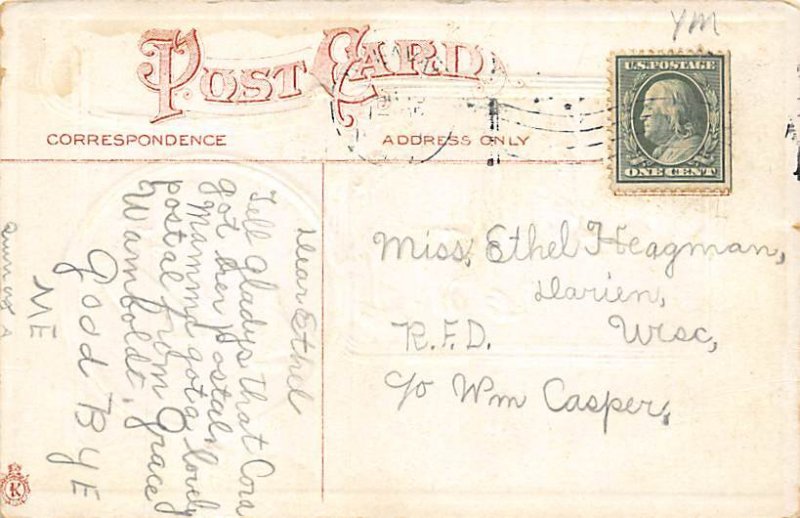 YM
POST CARD
U.S. POSTAGE
ONE CENT
CORRESPONDENCE
ADDRESS ONLY
Dear Ethel
Tell gladys that Cora
got her postal.
Mamma got a lovely
postal from Grace
Wamboldt.
good BYE
ME
Miss, Ethel Heagman,
Darien,
R.F.D. Wisc,
c/o Wm Casper,
K